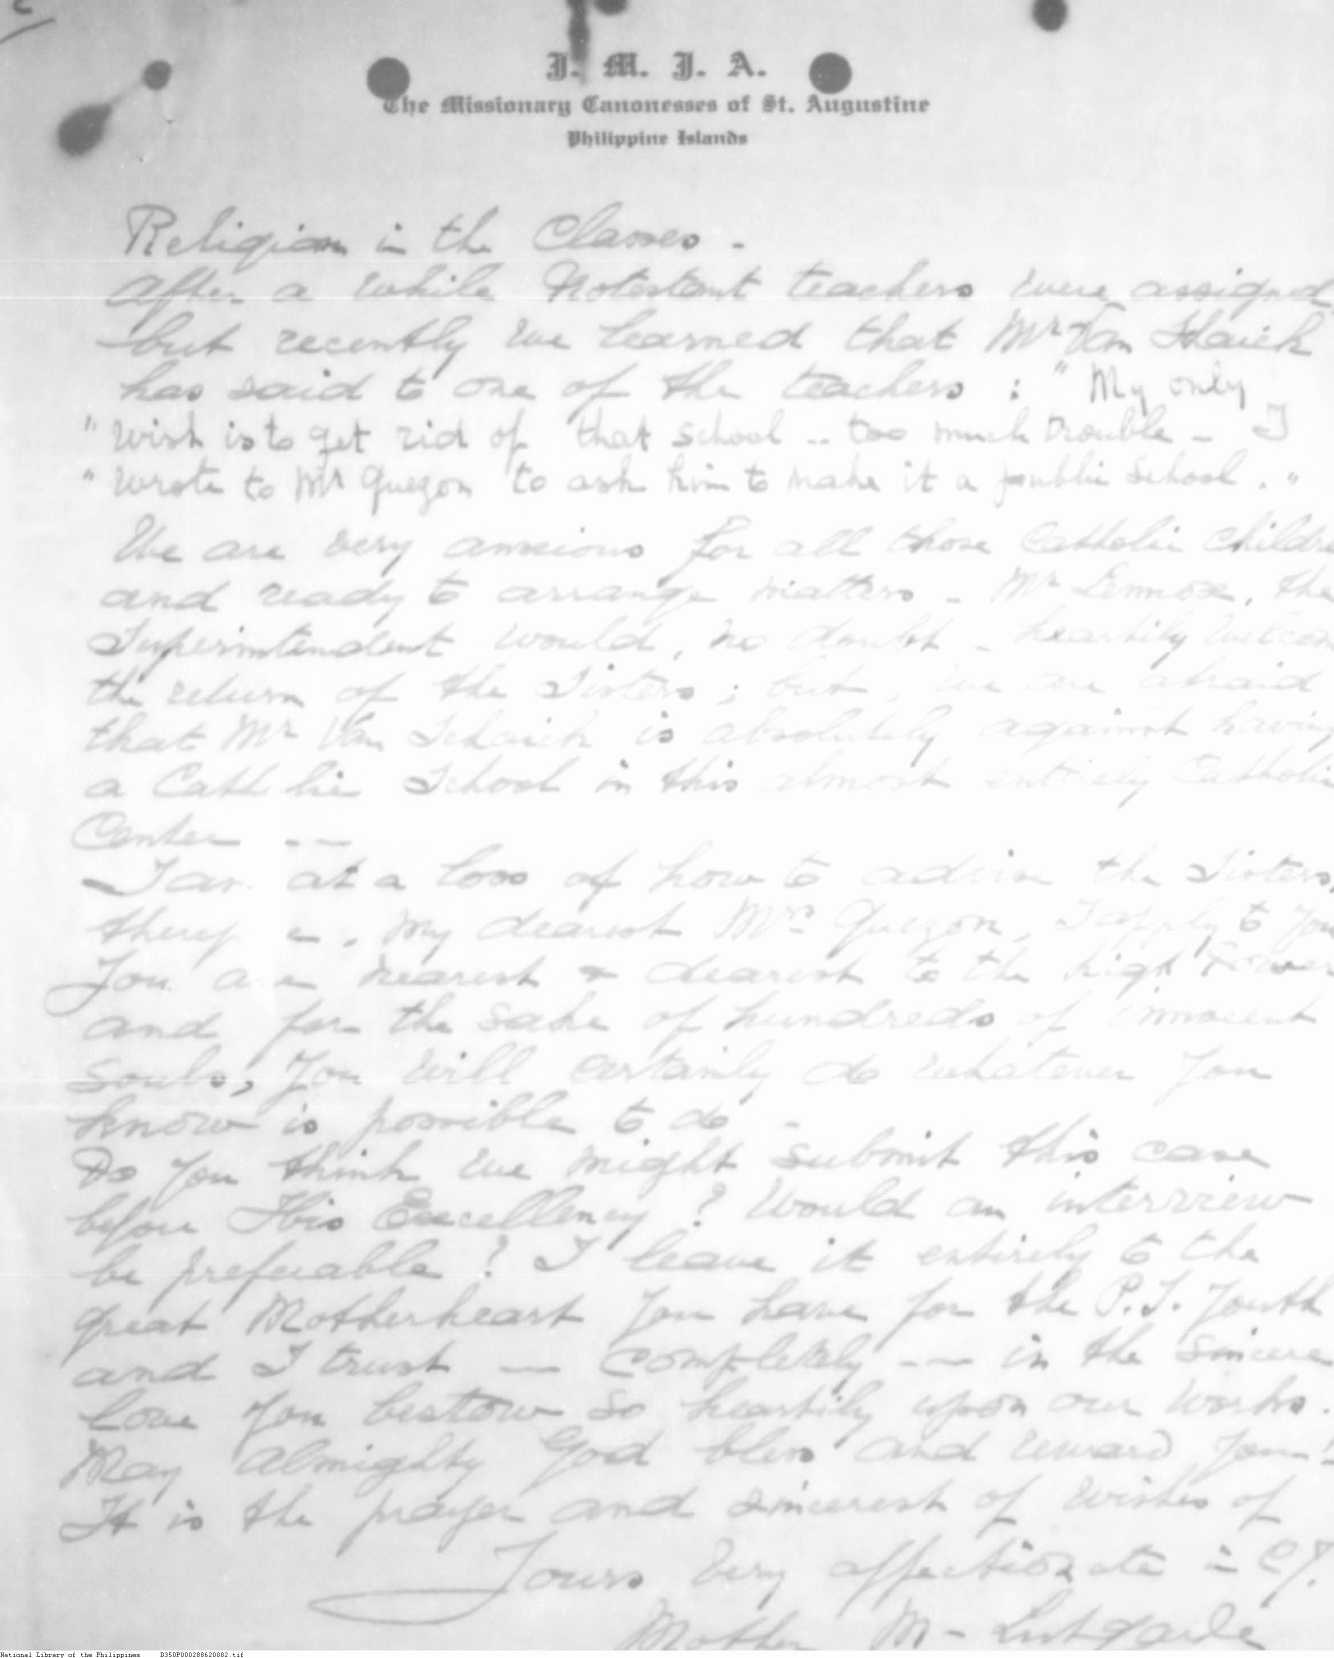 J. M. J. A.
The Missionary Canonesses of St. Augustine
Philippine Islands
Religion in the Classes -
After a while Protestant teachers were assigned
but recently we learned that Mr Van Shaick
has said to one of the teachers : " My only
" wish is to get rid of that school -- too much trouble - I
" wrote to Mr Quezon to ask him to make it a public school . "
We are very anxious for all those Catholic childre
and ready to arrange matters - Mr Lennox, the
Superintendent would, no doubt - heartily welcom
the return of the Sisters ; but, we are afraid
that Mr Van Schaick is absolutely against having
a Catholic School in this almost entirely Catholic
Center --
I am at a loss of how to advise the Sisters,
, My dearest Mrs Quezon, I apply to you
You are nearest & dearest to the high Power
and for the sake of hundreds of innocent
souls, you will certainly do whatever you
know is possible to do -
Do you think we might submit this case
before His Excellency ? Would an interview
be preferable ? I leave it entirely to the
great Motherheart you have for the P.I. youth
and I trust - completely -- in the sincere
love you bestow so heartily upon our works.
May Almighty God bless and reward you !
It is the prayer and sincerest of wishes of
Yours very affectionate in C.J.
Mother M - Lutgarde
National Library of the Philippines D350P000288620882.tif